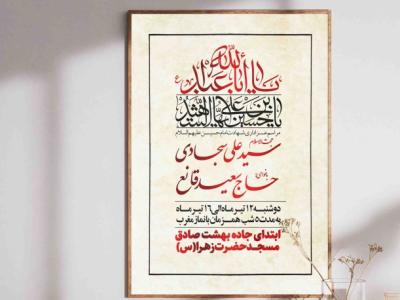 یا أبا عبدالله
ع
مراسم عزاداری شهادت امام حسین علیهم السلام
حجت الاسلام
سید علی سجادی
بانوای:
حاج سعید قانع
دوشنبه ۱۲ تیر ماه الی ۱۶ تیر ماه
به مدت ۵ شب همزمان با نماز مغرب
ابتدای جاده بهشت صادق
مسجد حضرت زهرا (س)